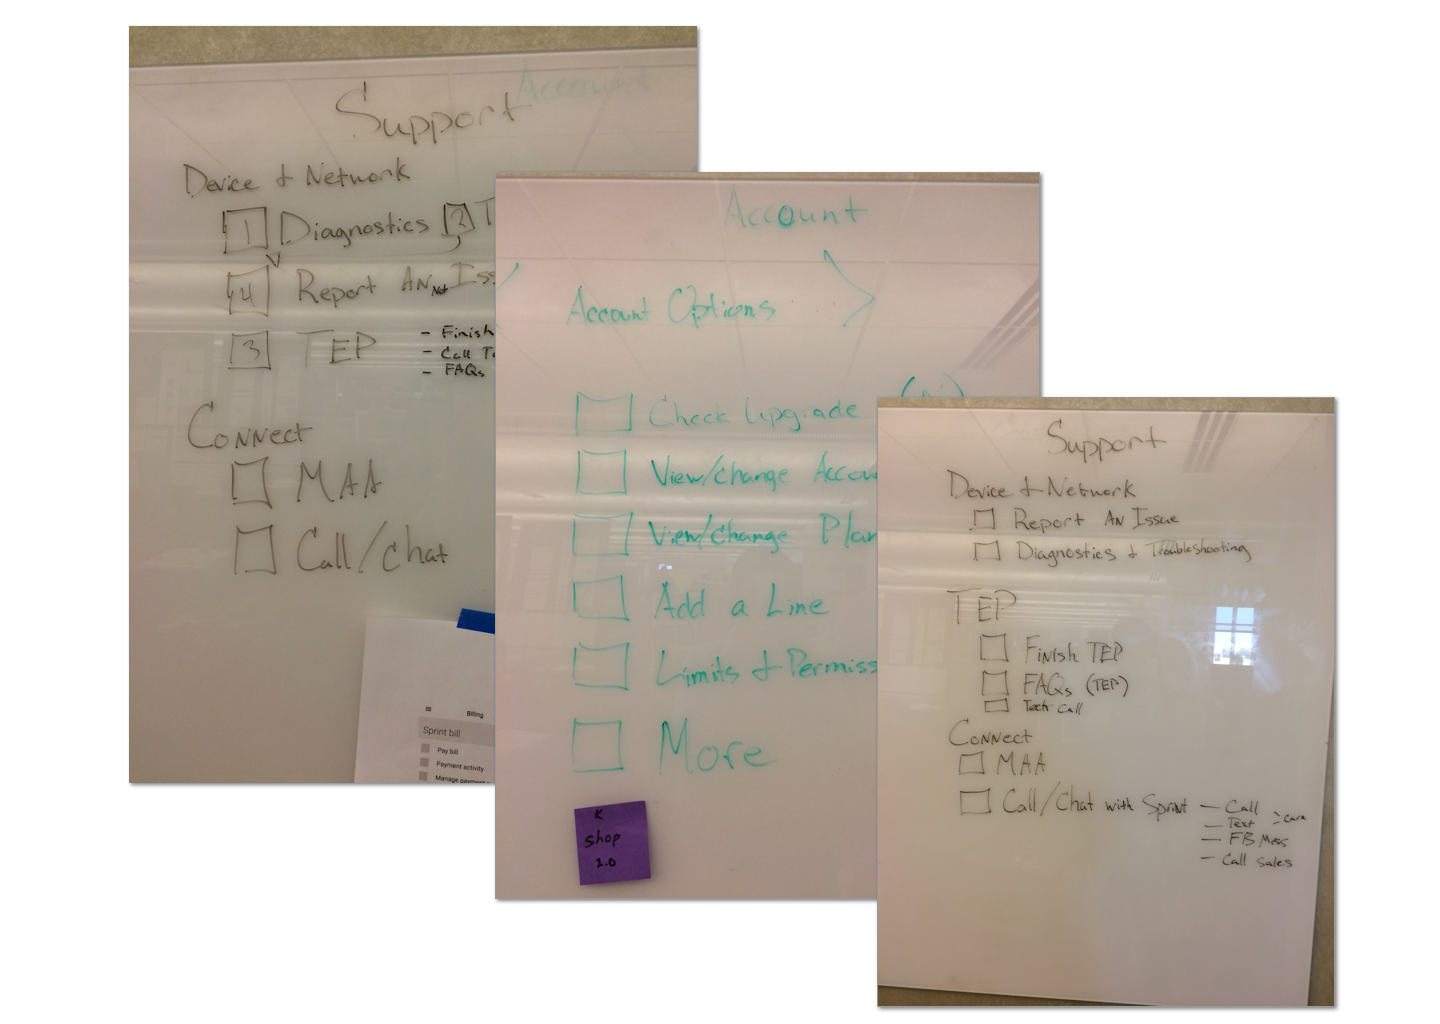 Account
Support
Device & Network
1 Diagnostics
4 Report An Iss
3 TEP
- Finish
- Call T
- FAQs
Connect
MAA
Call/Chat
Billing
Sprint bill
Pay bill
Payment activity
Manage payment
Account
Account Options
Check Upgrade
View/Change Accou
View/Change Plan
Add a Line
Limits & Permiss
More
K
Shop
1.0
Support
Device & Network
Report An Issue
Diagnostics & Troubleshooting
TEP
Finish TEP
FAQs (TEP)
Tech Call
Connect
MAA
Call/Chat with Sprint - Call
- Text > Care
- FB Mess
- Call Sales